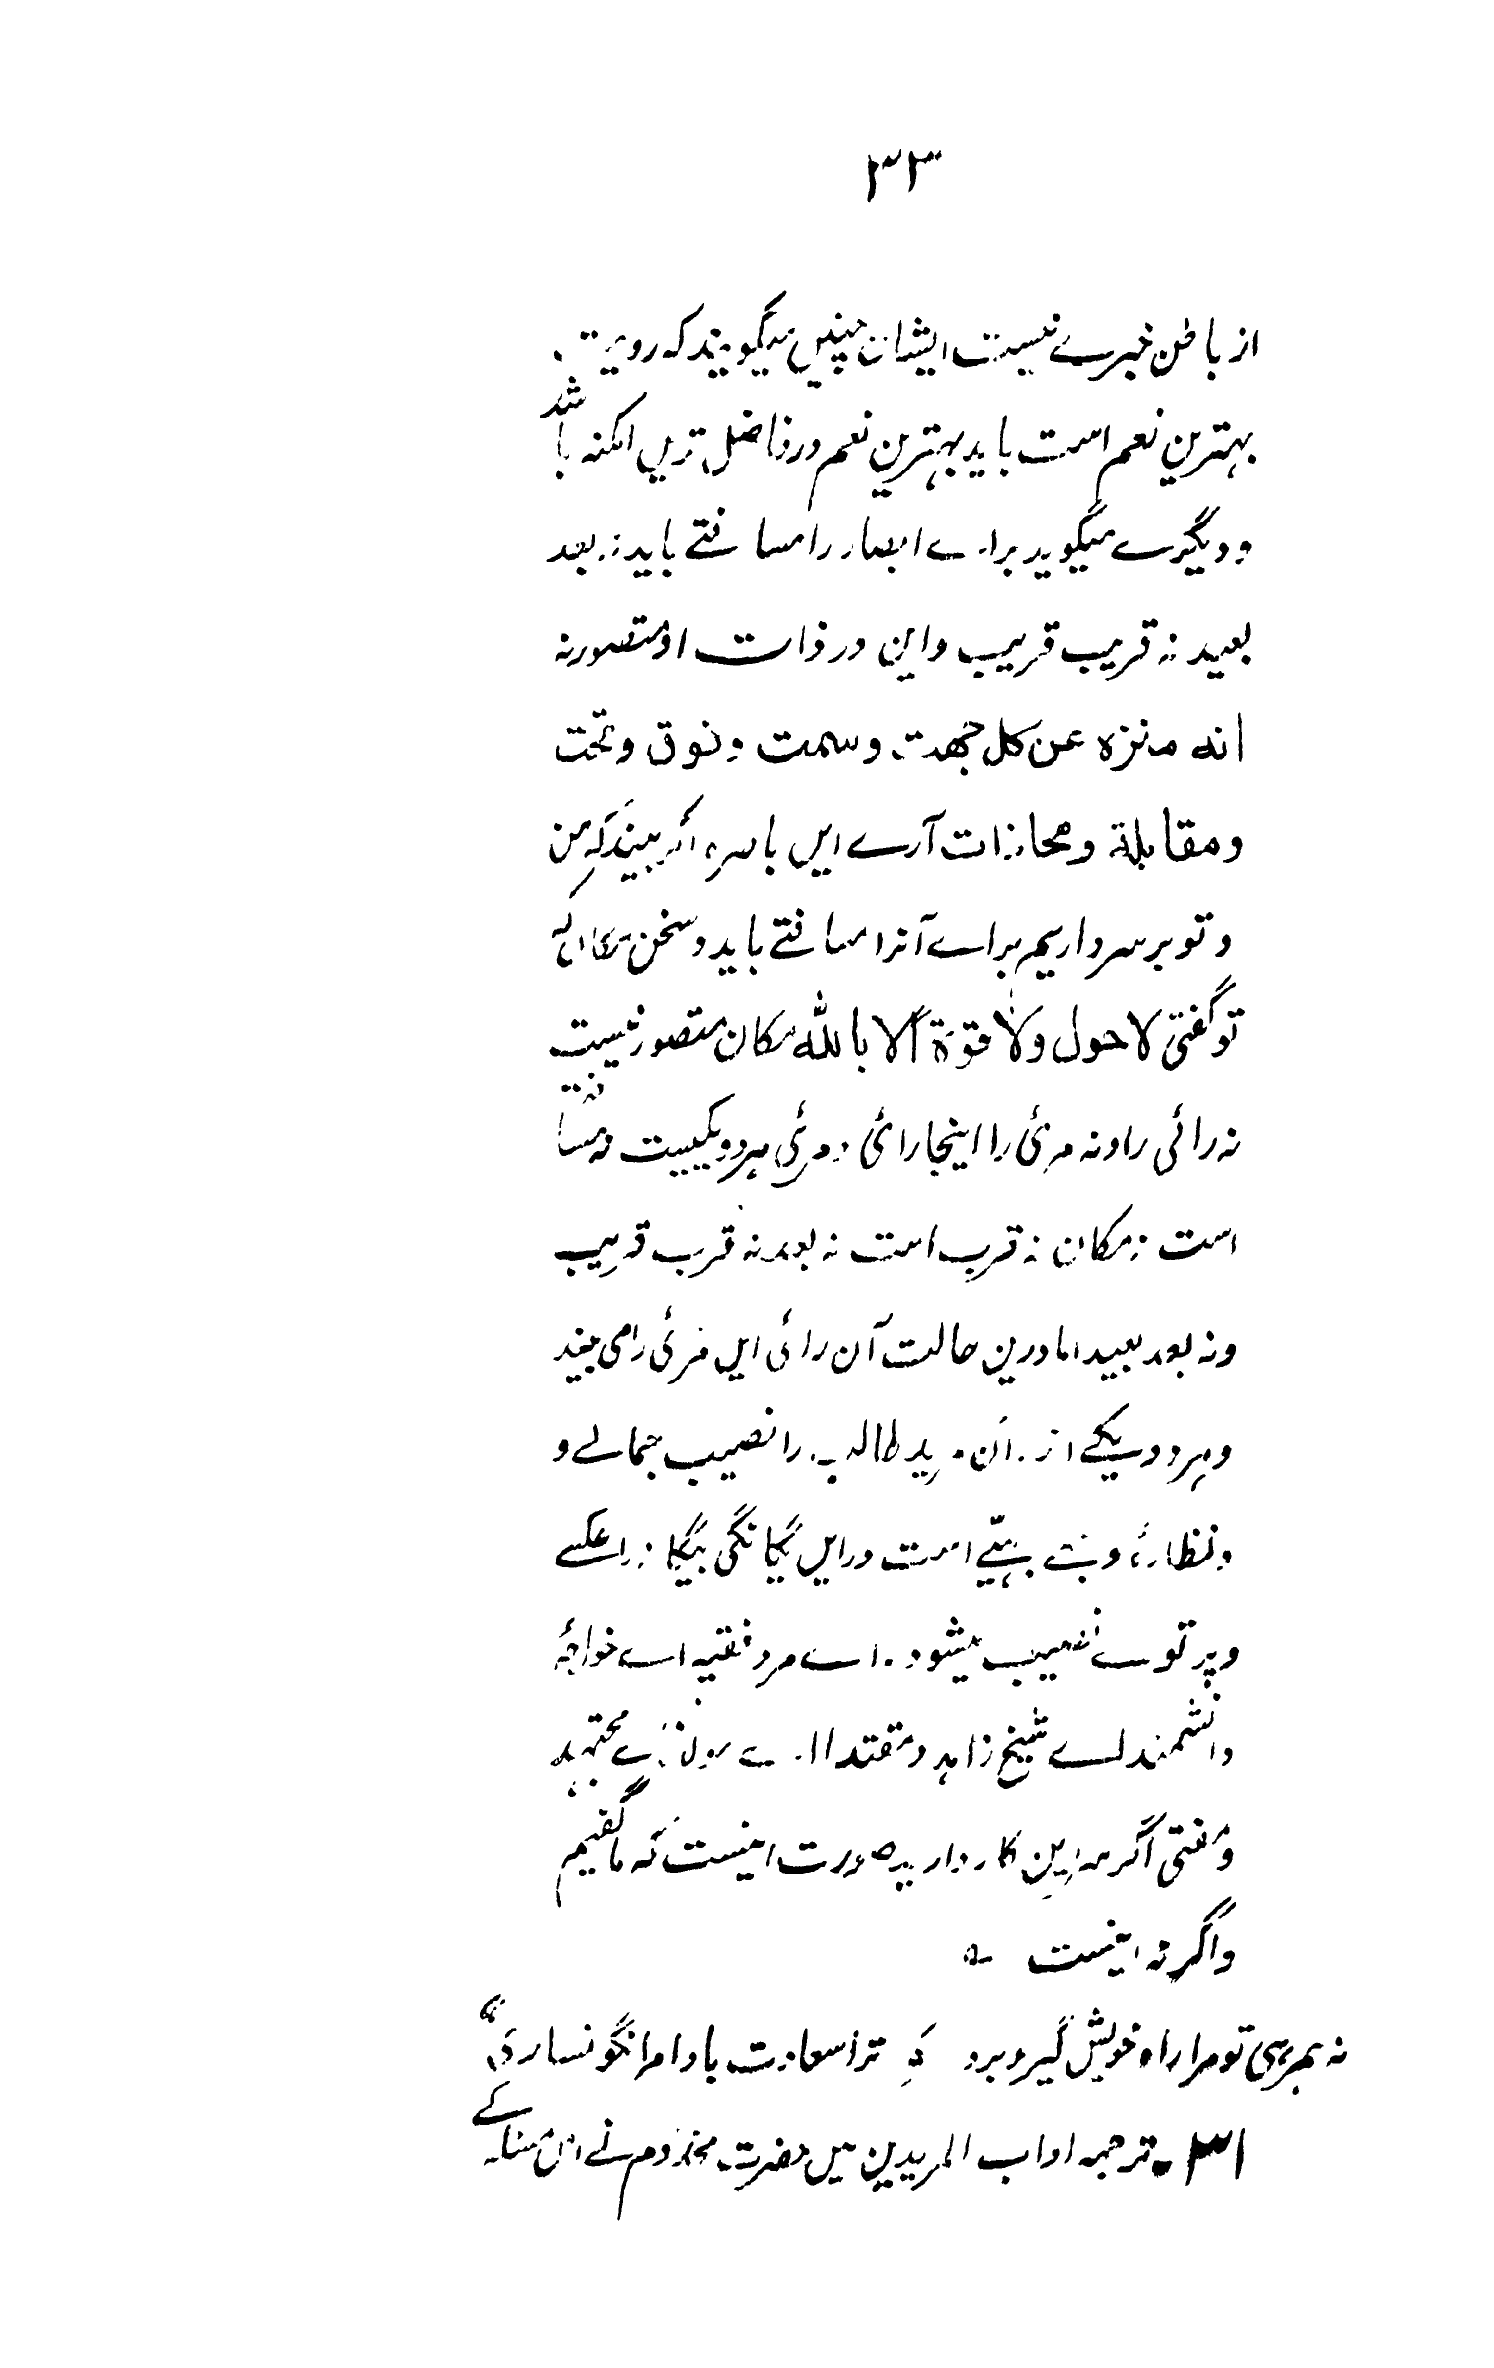 ۳۳
از باطن خبرے نیست ایشان چنیں میگویند کہ رویت
بہترین نعم است باید بہترین نعم در فاضل تریں امکنہ باشد
و دیگرے میگوید براے ابصار را مسافتے باید نہ بعد
بعید نہ قریب قریب و این در ذات او متصور نہ
انه منزه عن كل جهت وسمت وفوق وتحت
ومقابلة ومحاذات آرے ایں باسرہ اگر بیند کہ من
و تو بر سر داریم براے آنرا مسافتے باید و سخن مکان کہ
تو گفتی لاحول ولا قوة الا بالله مکان متصور نیست
نہ رائی را و نہ مرئی را اینجا رائی و مرئی ہر دو یکیست نہ مسافت
است نہ مکان نہ قرب است نہ بعد نہ قرب قریب
و نہ بعد بعید اما درین حالت آن رائی ایں مرئی را می بیند
و ہر دو یکے از آن مرید طالب را نصیب جمالے و
و نظارۂ و بہیّے است در ایں یگانگی بیگانہ را عکسے
و پرتوے نصیب میشود۔ اے مرد فقیہ اے خواجۂ
دانشمند اے شیخ زاہد و مقتدا اے مجتہد
و مفتی اگر سر این کار دارید صورت اینست کہ ما گفتیم
و اگر نہ اینست ؎
نہ بمرسی تو مرا راہ خویش گیر و برو   ترا سعادت بادا مرا نگونساری"
۳۱۔ ترجمہ اداب المریدین میں حضرت مخدوم نے اس مسئلہ کے